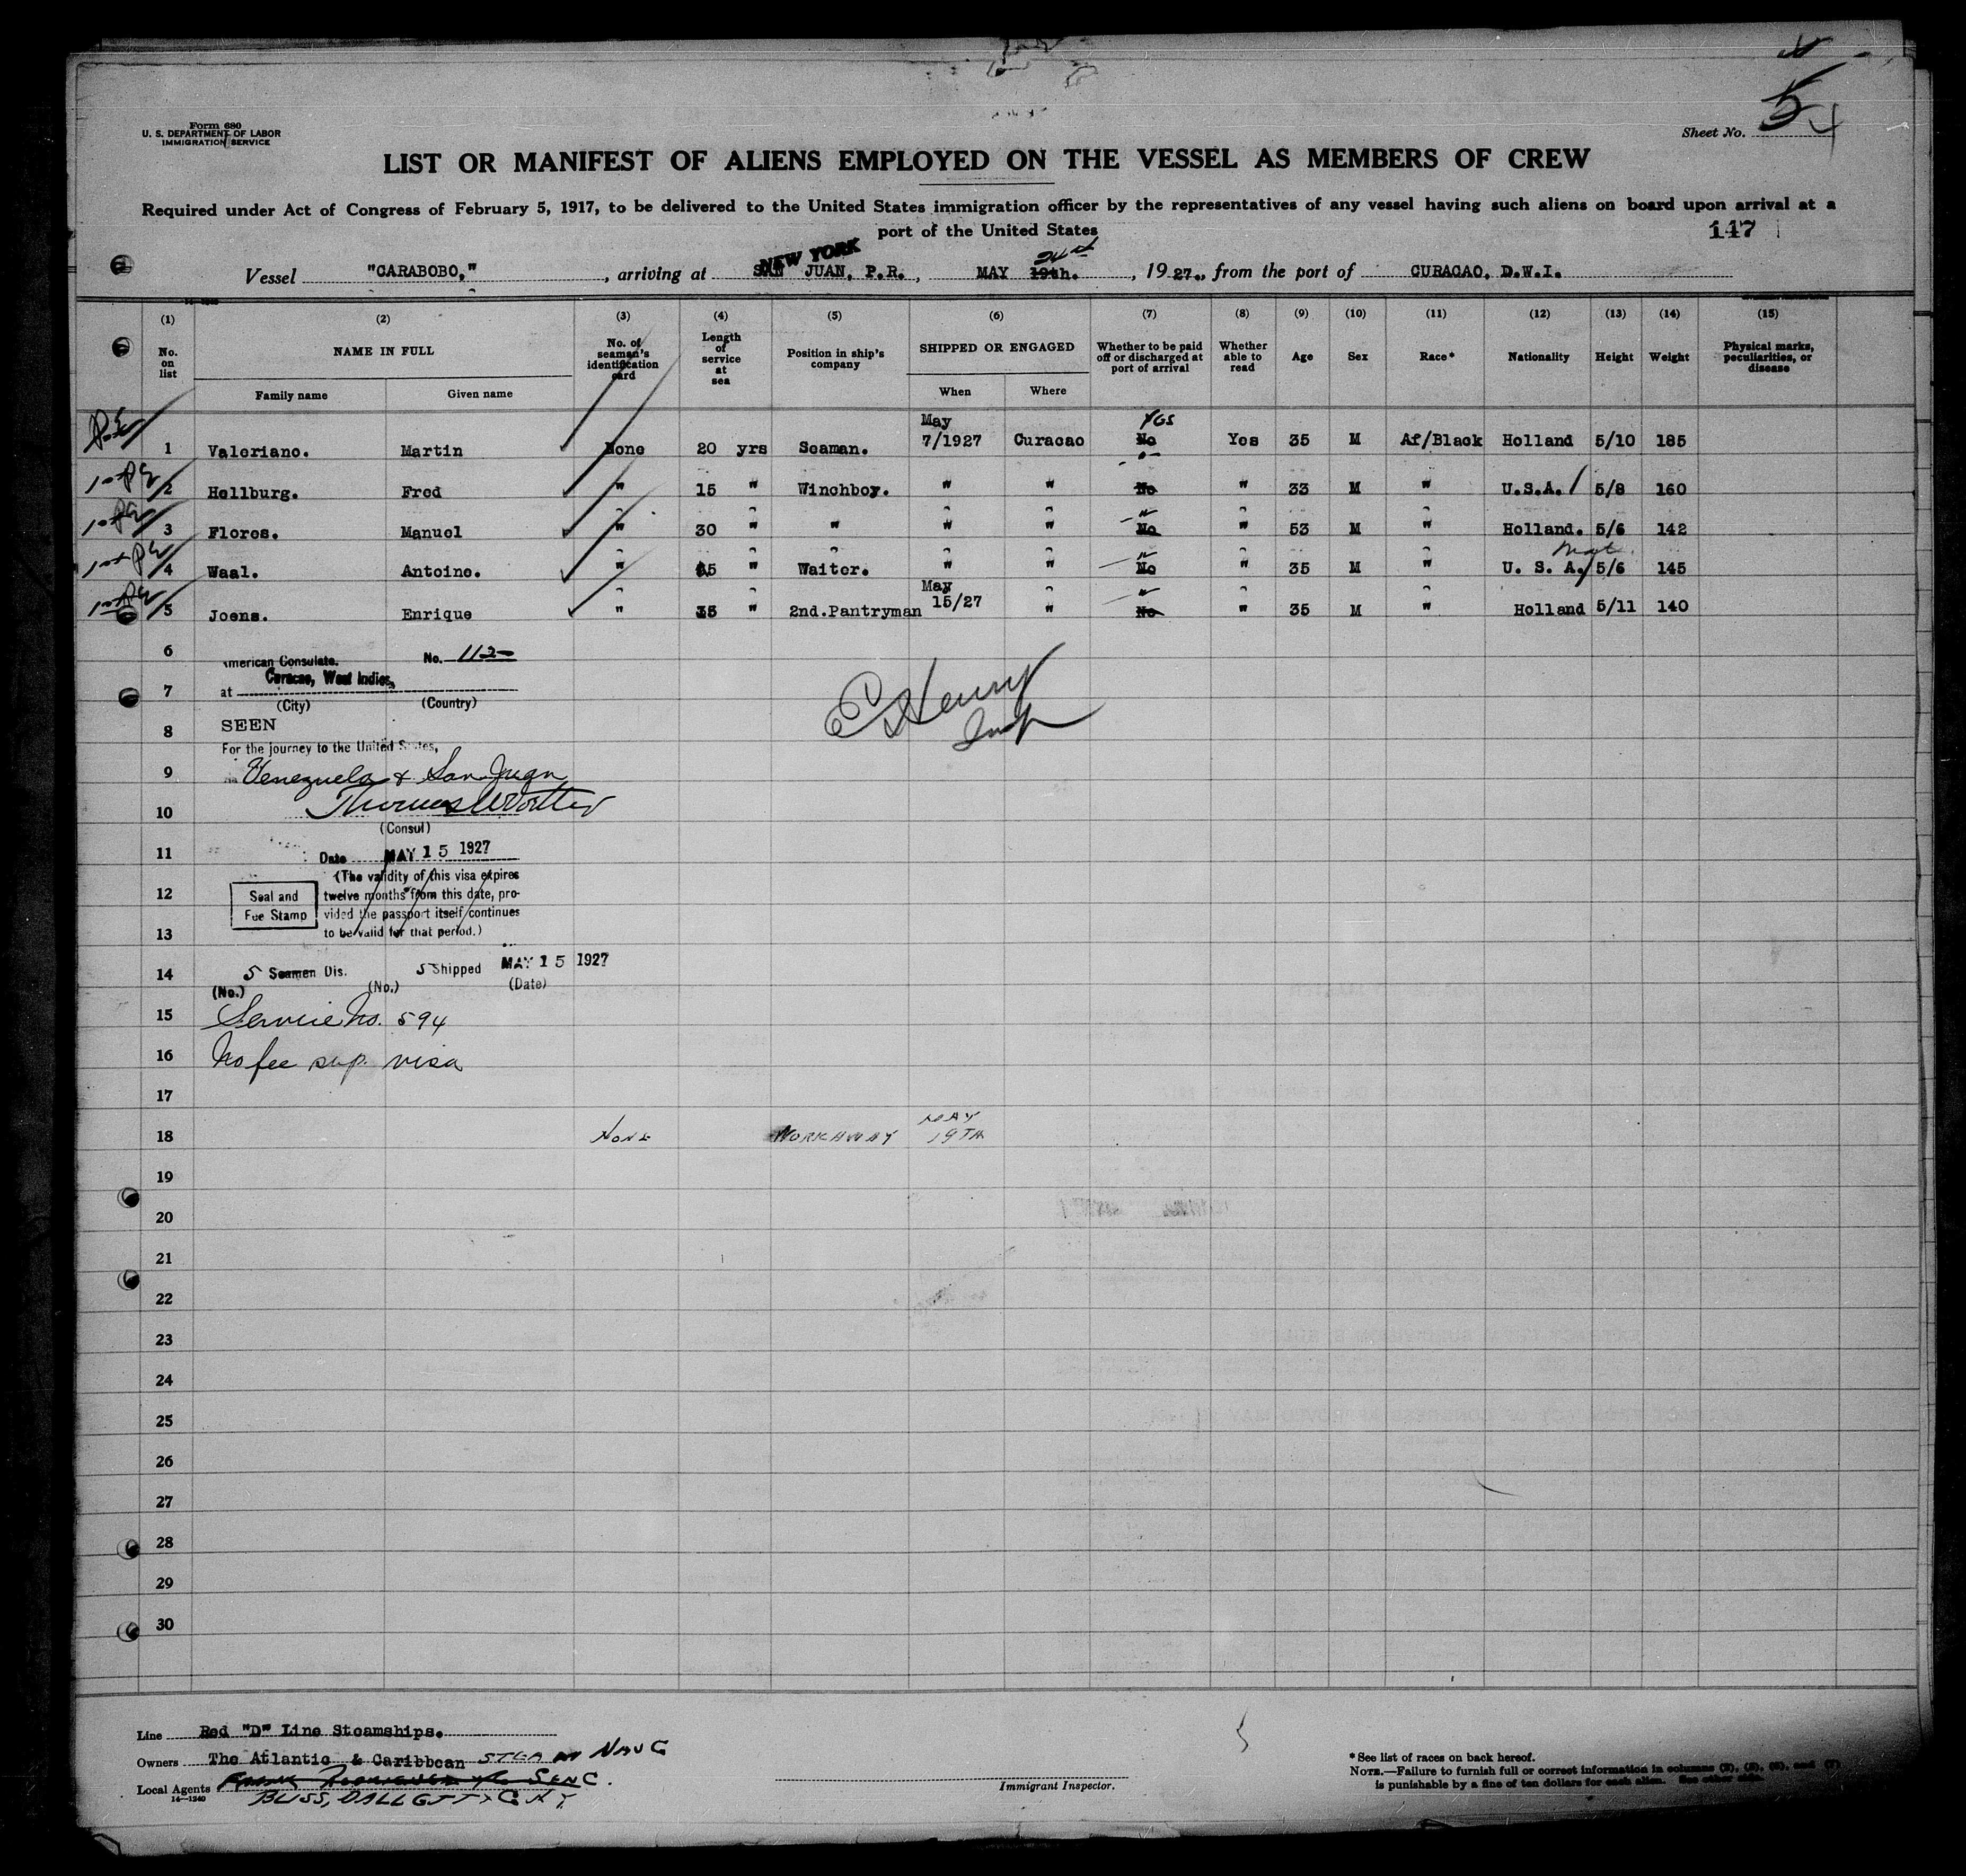 Form 680
U. S. DEPARTMENT OF LABOR
IMMIGRATION SERVICE
Sheet No. 5
LIST OR MANIFEST OF ALIENS EMPLOYED ON THE VESSEL AS MEMBERS OF CREW
Required under Act of Congress of February 5, 1917, to be delivered to the United States immigration officer by the representatives of any vessel having such aliens on board upon arrival at a
port of the United States
147
NEW YORK
Vessel "CARABOBO," , arriving at SAN JUAN, P.R. , MAY 19th. , 1927., from the port of CURACAO, D.W.I.
(1) (2) (3) (4) (5) (6) (7) (8) (9) (10) (11) (12) (13) (14) (15)
No. on list NAME IN FULL No. of seaman's identification card Length of service at sea Position in ship's company SHIPPED OR ENGAGED Whether to be paid off or discharged at port of arrival Whether able to read Age Sex Race* Nationality Height Weight Physical marks, peculiarities, or disease
Family name Given name When Where
May YES
1 Valeriano. Martin None 20 yrs Seaman. 7/1927 Curacao No Yes 35 M Af/Black Holland 5/10 185
2 Hellburg. Fred " 15 " Winchboy. " " No " 33 M " U.S.A. 5/8 160
3 Flores. Manuel " 30 " " " " No " 53 M " Holland. 5/6 142
4 Waal. Antoine. " 15 " Waiter. " " No " 35 M " U. S. A. 5/6 145
May
5 Joens. Enrique " 15 " 2nd.Pantryman 15/27 " No " 35 M " Holland 5/11 140
6
American Consulate. No. 112
Curacao, West Indies,
7 at
(City) (Country)
8 SEEN
For the journey to the United States,
9 Venezuela & San Juan
10
(Consul)
11 Date MAY 15 1927
(The validity of this visa expires
12 Seal and twelve months from this date, pro-
Fee Stamp vided the passport itself continues
13 to be valid for that period.)
14 5 Seamen Dis. 5 Shipped MAY 15 1927
(No.) (No.) (Date)
15 Service No. 594
16 No fee sup. visa
17
MAY
18 NONE WORKAWAY 19TH
19
20
21
22
23
24
25
26
27
28
29
30
E Henry
Insp
Line Red "D" Line Steamships.
Owners The Atlantic & Caribbean STEAM NAVG
Local Agents
14—1240
BLISS, DALLETT & C N.Y.
Immigrant Inspector.
* See list of races on back hereof.
NOTE.—Failure to furnish full or correct information in columns (2), (5), (6), and (7)
is punishable by a fine of ten dollars for each alien. See other side.